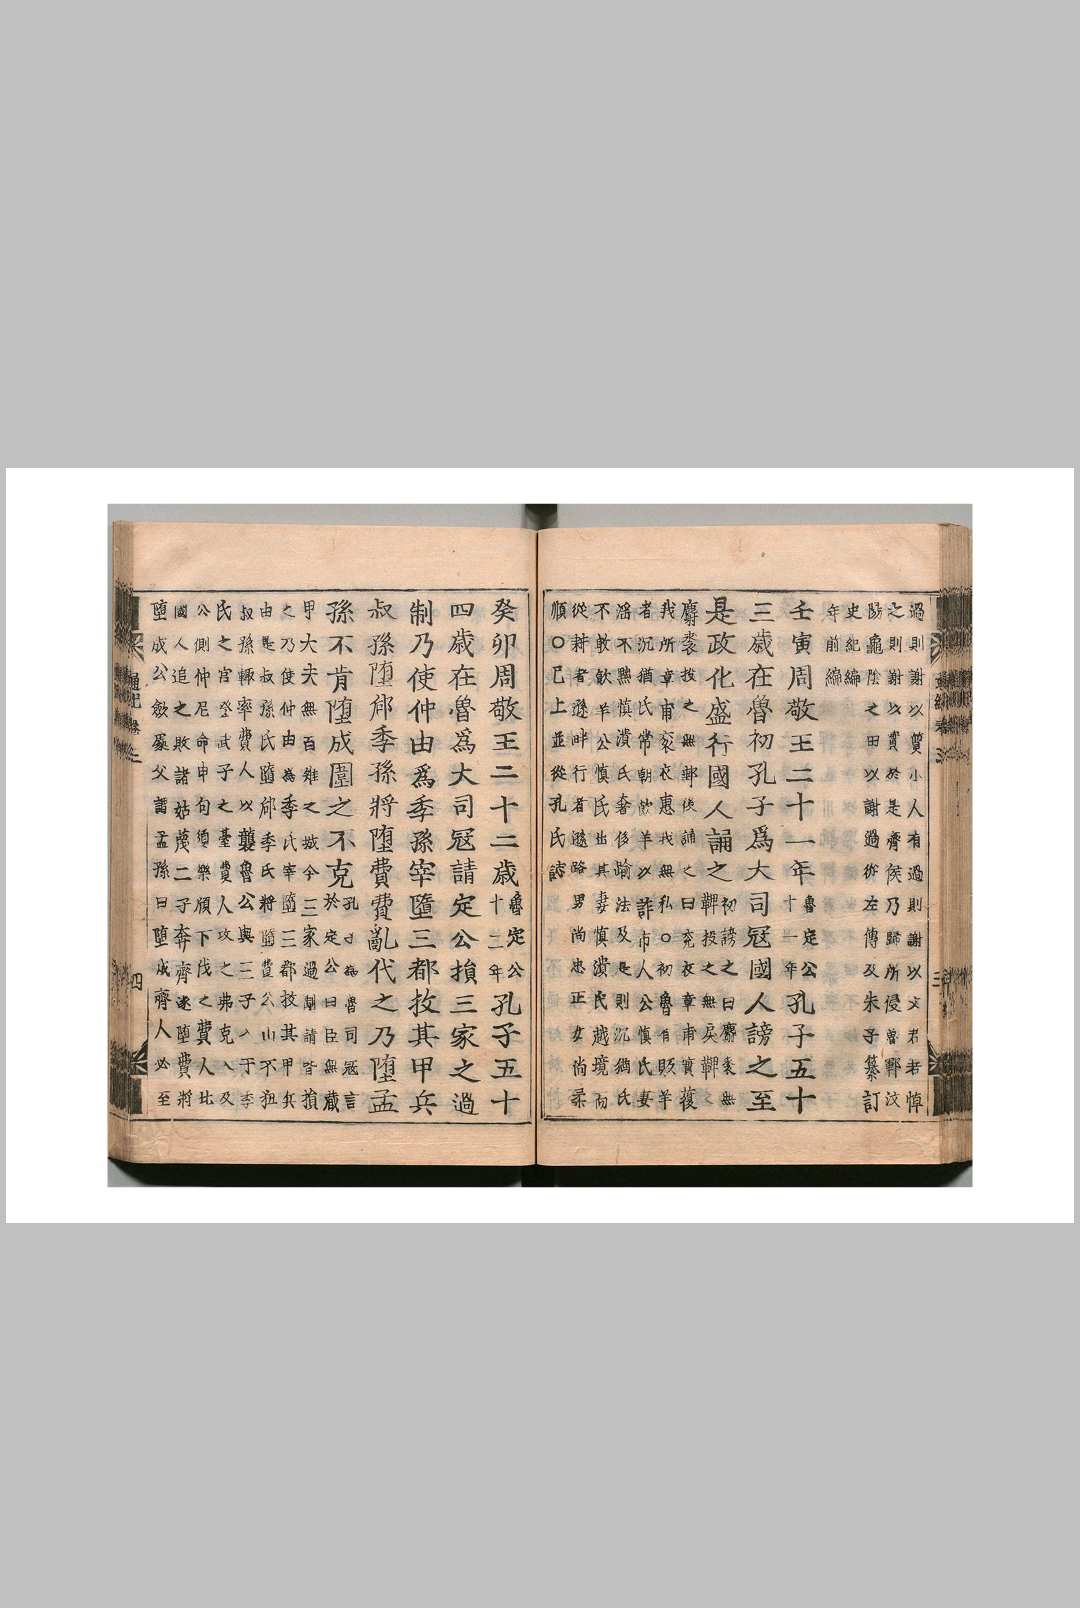 過則謝以質小人有過則謝以文君若悼
之則謝以實於是齊侯乃歸所侵魯鄆汶
陽龜陰之田以謝過依左傳及朱子纂訂
史紀編
年前編
壬寅周敬王二十一年魯定公十一年孔子五十
三歲在魯初孔子爲大司冦國人謗之至
是政化盛行國人誦之初謗之曰麛裘無鞸投之無戾鞸
麛裘投之無郵後誦之曰兖衣章甫實獲
我所章甫衮衣惠我無私○初魯有販羊
者沉猶氏常朝飮羊以詐市人公慎氏妻
淫不黙慎潰氏奢侈踰法及是則沉猶氏
不敢飮羊公慎氏出其妻慎潰氏越境而
從耕者遜畔行者遜路男尚忠正女尚柔
順○已上並從孔氏誌
癸卯周敬王二十二歲魯定公十二年孔子五十
四歲在魯爲大司冦請定公損三家之過
制乃使仲由爲季孫宰墮三都投其甲兵
叔孫墮郈季孫將墮費費亂伐之乃墮孟
孫不肯墮成圍之不克孔子為魯司冦言於定公曰臣無藏
甲大夫無百雉之城今三家過制請皆損
之乃使仲由為季氏宰墮三都投其甲兵
由是叔孫氏墮郈季氏將墮費公山不狃
叔孫輒率費人以襲魯公與三子入于季
氏之宮登武子之臺費人攻之弗克入及
公側仲尼命申句須樂頎下伐之費人北
國人追之敗諸姑蔑二子奔齊遂墮費將
墮成公斂處父謂孟孫曰墮成齊人必至
通記卷三
四